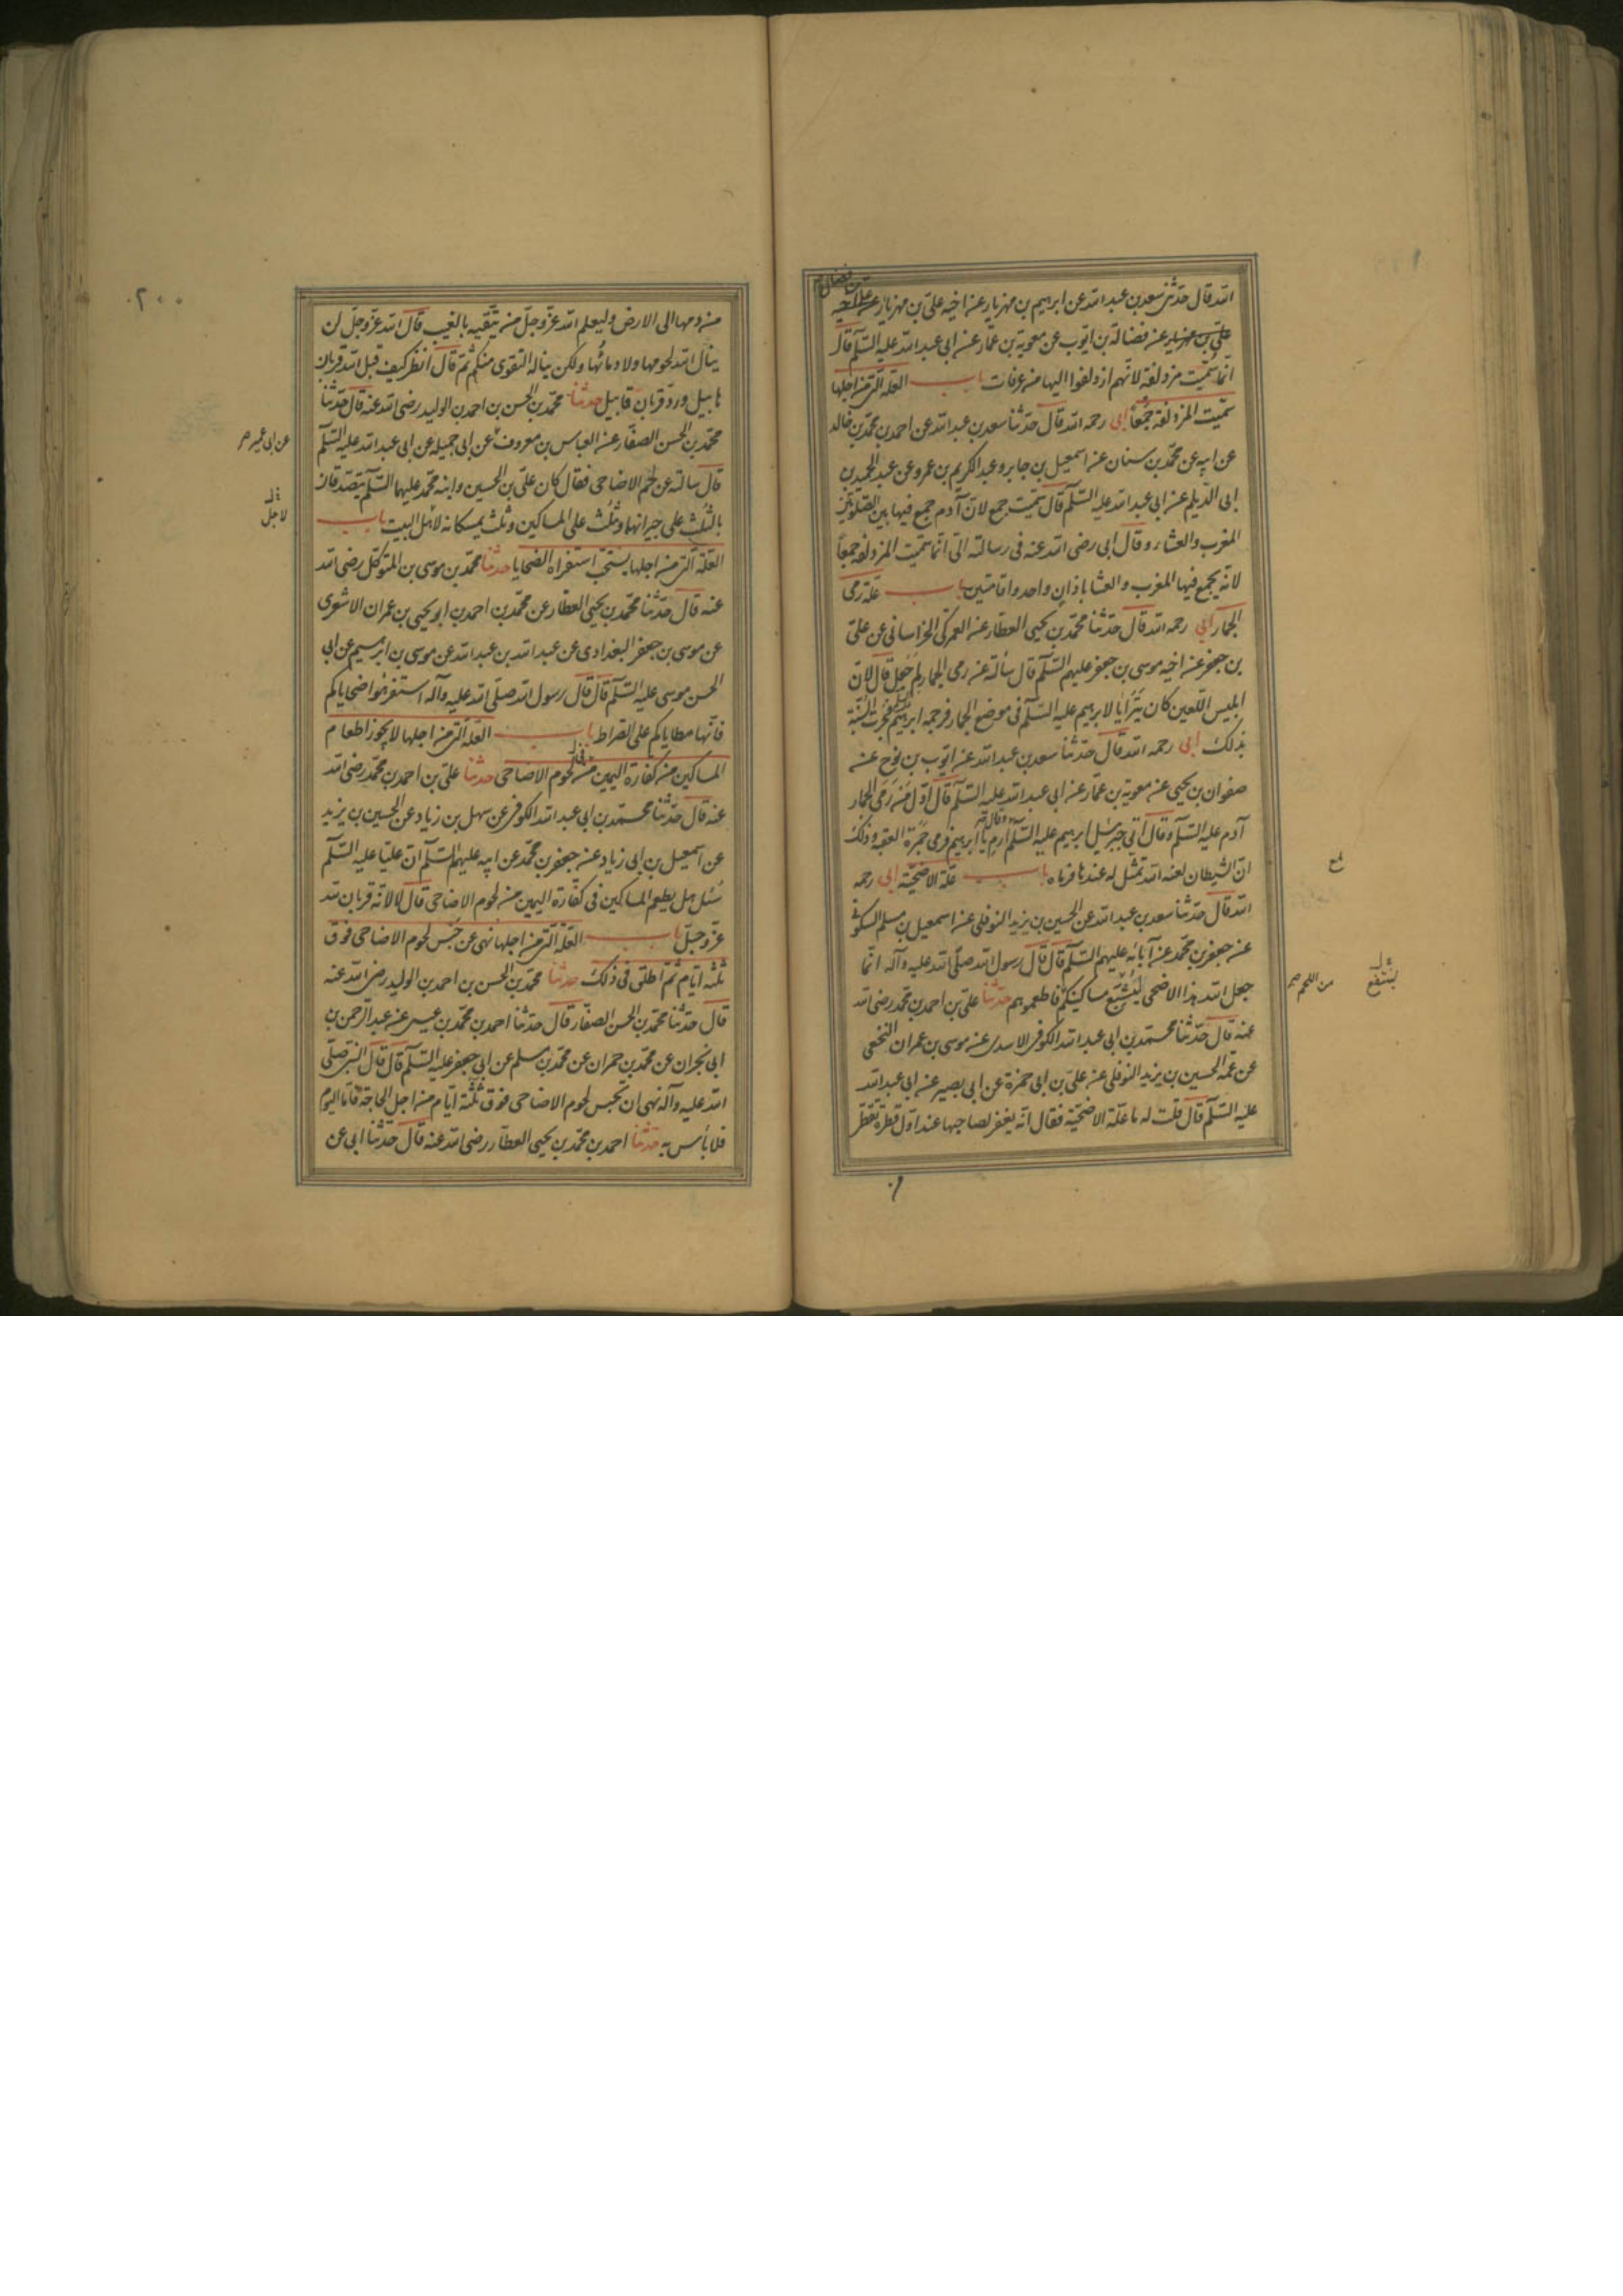 الله قال حدثنى سعد بن عبد الله عن ابرهيم بن مهزيار عن اخيه على بن مهزيار
على بن مهزيار عن فضالة بن ايوب عن معوية بن عمار عن ابى عبد الله عليه السلم قال
انما سميت مزدلفة لانهم ازدلفوا اليها من عرفات باب العلة التى من اجلها
سميت المزدلفة جمعا ابى رحمه الله قال حدثنا سعد بن عبد الله عن احمد بن محمد بن خالد
عن ابيه عن محمد بن سنان عن اسمعيل بن جابر وعبد الكريم بن عمرو عن عبد الحميد بن
ابى الديلم عن ابى عبد الله عليه السلم قال سميت جمع لان آدم جمع فيها بين الصلوتين
المغرب والعشاء وقال ابى رضى الله عنه فى رسالته الى انما سميت المزدلفة جمعا
لانه يجمع فيها المغرب والعشا باذان واحد واقامتين باب علة رمى
الجمار ابى رحمه الله قال حدثنا محمد بن يحيى العطار عن العمركى الخراسانى عن على
بن جعفر عن اخيه موسى بن جعفر عليهم السلم قال سألته عن رمى الجمار لم جعل قال لان
ابليس اللعين كان يتراءيا لابرهيم عليه السلم فى موضع الجمار فرجمه ابرهيم فجرت السنة
بذلك ابى رحمه الله قال حدثنا سعد بن عبد الله عن ايوب بن نوح عن
صفوان بن يحيى عن معوية بن عمار عن ابى عبد الله عليه السلم قال اول من رمى الجمار
آدم عليه السلم وقال اتى جبرئيل ابرهيم عليه السلم وقال ارم يا ابرهيم فرمى جمرة العقبه وذلك
ان الشيطان لعنه الله تمثل له عندها فرماه باب علة الاضحية ابى رحمه
الله قال حدثنا سعد بن عبد الله عن الحسين بن يزيد النوفلى عن اسمعيل بن مسلم السكونى
عن جعفر بن محمد عن آبائه عليهم السلم قال قال رسول الله صلى الله عليه وآله انما
جعل الله هذا الاضحى ليشبع مساكينكم فاطعموهم حدثنا على بن احمد بن محمد رضى الله
عنه قال حدثنا محمد بن ابى عبد الله الكوفى الاسدى عن موسى بن عمران النخعى
عن عمه الحسين بن يزيد النوفلى عن على بن ابى حمزة عن ابى بصير عن ابى عبد الله
عليه السلم قال قلت له ما علة الاضحية فقال انه يغفر لصاحبها عند اول قطرة تقطر
من اللحم صح
٢٠٠
من دمها الى الارض وليعلم الله عز وجل من يتقيه بالغيب قال الله عز وجل لن
ينال الله لحومها ولا دمائها ولكن يناله التقوى منكم ثم قال انظر كيف قبل الله قربان
هابيل ورد قربان قابيل حدثنا محمد بن الحسن بن احمد بن الوليد رضى الله عنه قال حدثنا
محمد بن الحسن الصفار عن العباس بن معروف عن ابى جميله عن ابى عبد الله عليه السلم
قال سالته عن لحم الاضاحى فقال كان على بن الحسين وابنه محمد عليهما السلم يتصدقان
بالثلث على جيرانهما وثلث على المساكين وثلث يمسكانه لاهل البيت باب
العلة التى من اجلها يستحب استفراه الضحايا حدثنا محمد بن موسى بن المتوكل رضى الله
عنه قال حدثنا محمد بن يحيى العطار عن محمد بن احمد بن ابو يحيى بن عمران الاشعرى
عن موسى بن جعفر البغدادى عن عبد الله بن عبد الله عن موسى بن ابرهيم عن ابى
الحسن موسى عليه السلم قال قال رسول الله صلى الله عليه وآله استفرهوا ضحاياكم
فانها مطاياكم على الصراط باب العلة التى من اجلها لا يجوز اطعام
المساكين من كفارة اليمين من لحوم الاضاحى حدثنا على بن احمد بن محمد رضى الله
عنه قال حدثنا محمد بن ابى عبد الله الكوفى عن سهل بن زياد عن الحسين بن يزيد
عن اسمعيل بن ابى زياد عن جعفر بن محمد عن ابيه عليهم السلم ان عليا عليه السلم
سئل هل يطعم المساكين فى كفارة اليمين من لحوم الاضاحى قال لا لانه قربان لله
عز وجل باب العلة التى من اجلها نهى عن حبس لحوم الاضاحى فوق
ثلثه ايام ثم اطلق فى ذلك حدثنا محمد بن الحسن بن احمد بن الوليد رضى الله عنه
قال حدثنا محمد بن الحسن الصفار قال حدثنا احمد بن محمد بن عيسى عن عبد الرحمن بن
ابى نجران عن محمد بن حمران عن محمد بن مسلم عن ابى جعفر عليه السلم قال قال النبى صلى
الله عليه وآله نهى ان تحبس لحوم الاضاحى فوق ثلثة ايام من اجل الحاجة فاما اليوم
فلا بأس به حدثنا احمد بن محمد بن يحيى العطار رضى الله عنه قال حدثنا ابى عن
عن ابى عمير صح
لاجل